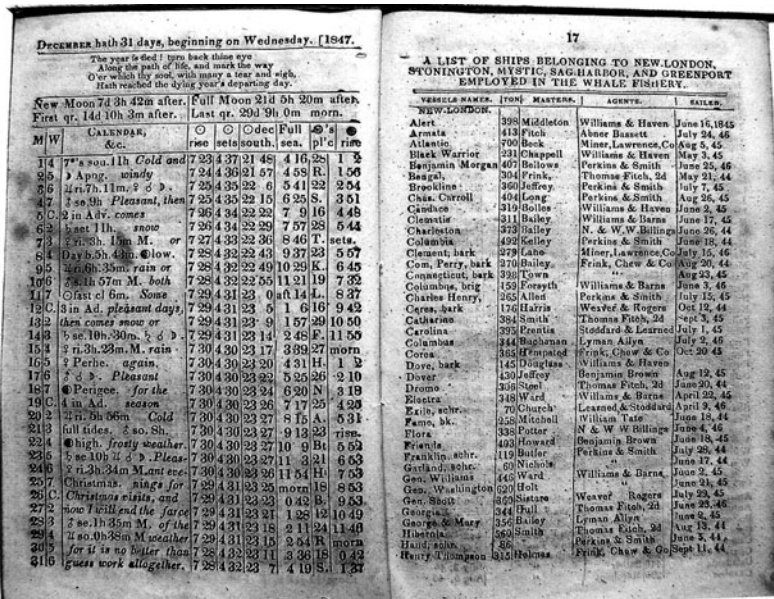 DECEMBER hath 31 days, beginning on Wednesday. [1847.
The year is fled! turn back thine eye
Along the path of life, and mark the way
O'er which thy soul, with many a tear and sigh,
Hath reached the dying year's departing day.
New Moon 7d 3h 42m after. Full Moon 21d 5h 20m after.
First qr. 14d 10h 3m after. Last qr. 29d 9h 0m morn.
M W CALENDAR, &c. ☉ rise ☉ sets ☉dec south. Full sea. pl'c rise
1 4 7*s sou. 11h Cold and 7 23 4 37 21 48 4 16 28 1 2
2 5 ☽ Apng. windy 7 24 4 36 21 57 4 58 R. 1 56
3 6 ♃ri. 7h. 11m. ♀ ☌ ☽. 7 25 4 35 22 6 5 41 22 2 54
4 7 so. 9h Pleasant, then 7 25 4 35 22 15 6 25 S. 3 51
5 C. 2 in Adv. comes 7 26 4 34 22 22 7 9 16 4 48
6 2 set 11h. snow 7 26 4 34 22 29 7 57 28 5 44
7 3 ♀ri. 3h. 15m M. or 7 27 4 33 22 36 8 46 T. sets.
8 4 Day b. 5h. 43m. low. 7 28 4 32 22 43 9 37 23 5 57
9 5 ♃ri. 6h. 35m. rain or 7 28 4 32 22 49 10 29 K. 6 45
10 6 1h 57m M. both 7 28 4 32 22 55 11 21 19 7 32
11 7 ☉fast cl 6m. Some 7 29 4 31 23 0 aft 14 L. 8 37
12 C. 3 in Ad. pleasant days, 7 29 4 31 23 5 1 6 16 9 42
13 2 then comes snow or 7 29 4 31 23 9 1 57 29 10 50
14 3 se. 10h. 30m. ☌ ☽. 7 29 4 31 23 14 2 48 F. 11 55
15 4 ♀ri. 3h. 23m M. rain 7 30 4 30 23 17 3 39 27 morn
16 5 ☿ Perhe. again. 7 30 4 30 23 20 4 31 H. 1 2
17 6 ☌ ☽. Pleasant 7 30 4 30 23 22 5 25 26 2 10
18 7 Perigee. for the 7 30 4 30 23 24 6 20 N 3 18
19 C. 4 in Ad. season 7 30 4 30 23 26 7 17 25 4 25
20 2 ♃ri. 5h 56m Cold 7 30 4 30 23 27 8 15 A. 5 31
21 3 full tides. so. 8h. 7 30 4 30 23 27 9 13 23 rise.
22 4 high. frosty weather. 7 30 4 30 23 27 10 9 Bt 5 52
23 5 se 10h ☌ ☽. Pleas- 7 30 4 30 23 27 11 3 21 6 53
24 6 ♀ri. 3h. 34m M. ant eve- 7 30 4 30 23 26 11 54 H. 7 53
25 7 Christmas. nings for 7 29 4 31 23 25 morn 18 8 53
26 C. Christmas visits, and 7 29 4 31 23 23 0 42 B. 9 53
27 2 now I will end the farce 7 29 4 31 23 21 1 28 12 10 49
28 3 se. 1h 35m M. of the 7 29 4 31 23 18 2 11 24 11 46
29 4 so. 0h38m M weather 7 29 4 31 23 15 2 54 R morn
30 5 for it is no better than 7 28 4 32 23 11 3 36 18 0 42
31 6 guess work altogether. 7 28 4 32 23 7 4 19 S. 1 37
17
A LIST OF SHIPS BELONGING TO NEW-LONDON,
STONINGTON, MYSTIC, SAG-HARBOR, AND GREENPORT
EMPLOYED IN THE WHALE FISHERY.
VESSELS NAMES. TON MASTERS. AGENTS. SAILED.
NEW-LONDON.
Alert 398 Middleton Williams & Haven June 16, 1845
Armata 413 Fitch Abner Bassett July 24, 46
Atlantic 700 Beck Miner, Lawrence, Co Aug 5, 45
Black Warrior 231 Chappell Williams & Haven May 3, 45
Benjamin Morgan 407 Bellows Perkins & Smith June 25, 46
Bengal, 304 Frink, Thomas Fitch, 2d May 21, 44
Brookline 360 Jeffrey, Perkins & Smith July 7, 45
Chas. Carroll 404 Long Perkins & Smith Aug 26, 45
Candace 319 Bolles Williams & Haven June 2, 45
Clematis 311 Bailey Williams & Barns June 17, 45
Charleston 373 Bailey N. & W. W. Billings June 26, 44
Columbia 492 Kelley Perkins & Smith June 18, 44
Clement, bark 279 Lane Miner, Lawrence, Co July 15, 46
Com. Perry, bark 270 Bailey Frink, Chew & Co Aug 20, 44
Connecticut, bark 398 Town Aug 23, 45
Columbus, brig 159 Forsyth Williams & Barns June 3, 46
Charles Henry, 265 Allen Perkins & Smith July 15, 45
Ceres, bark 176 Harris Weaver & Rogers Oct 12, 44
Catharine 384 Smith Thomas Fitch, 2d Sept 3, 45
Carolina 395 Prentis Stoddard & Learned July 1, 45
Columbus 344 Buchanan Lyman Allyn July 2, 46
Corea 365 Hempsted Frink, Chew & Co Oct 20 45
Dove, bark 145 Douglass Williams & Haven
Dover 430 Jeffrey Benjamin Brown Aug 12, 45
Dromo 306 Steel Thomas Fitch, 2d June 20, 44
Electra 348 Ward Williams & Barns April 22, 45
Exile, schr. 70 Church Learned & Stoddard April 9, 46
Fame, bk. 258 Mitchell William Tate June 18, 44
Flora 338 Potter N & W W Billings June 4, 46
Friends 403 Howard Benjamin Brown June 18, 45
Franklin, schr. 119 Butler Perkins & Smith July 28, 44
Garland, schr. 60 Nichols " June 17, 44
Gen. Williams 446 Ward Williams & Barns June 2, 45
Gen. Washington 620 Holt " June 21, 45
Gen. Scott 360 Sistare Weaver Rogers July 29, 45
Georgia 344 Hull Thomas Fitch, 2d June 25, 46
George & Mary 356 Bailey Lyman Allyn June 2, 45
Hibernia 560 Smith Thomas Fitch, 2d Aug 13, 44
Hand, schr. 86 Perkins & Smith June 3, 44
Henry Thompson 315 Holmes Frink, Chew & Co Sept 11, 44